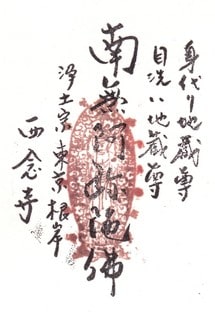 身代り地蔵尊
目洗い地蔵尊
南無阿弥陀佛
浄土宗東京根岸
西念寺